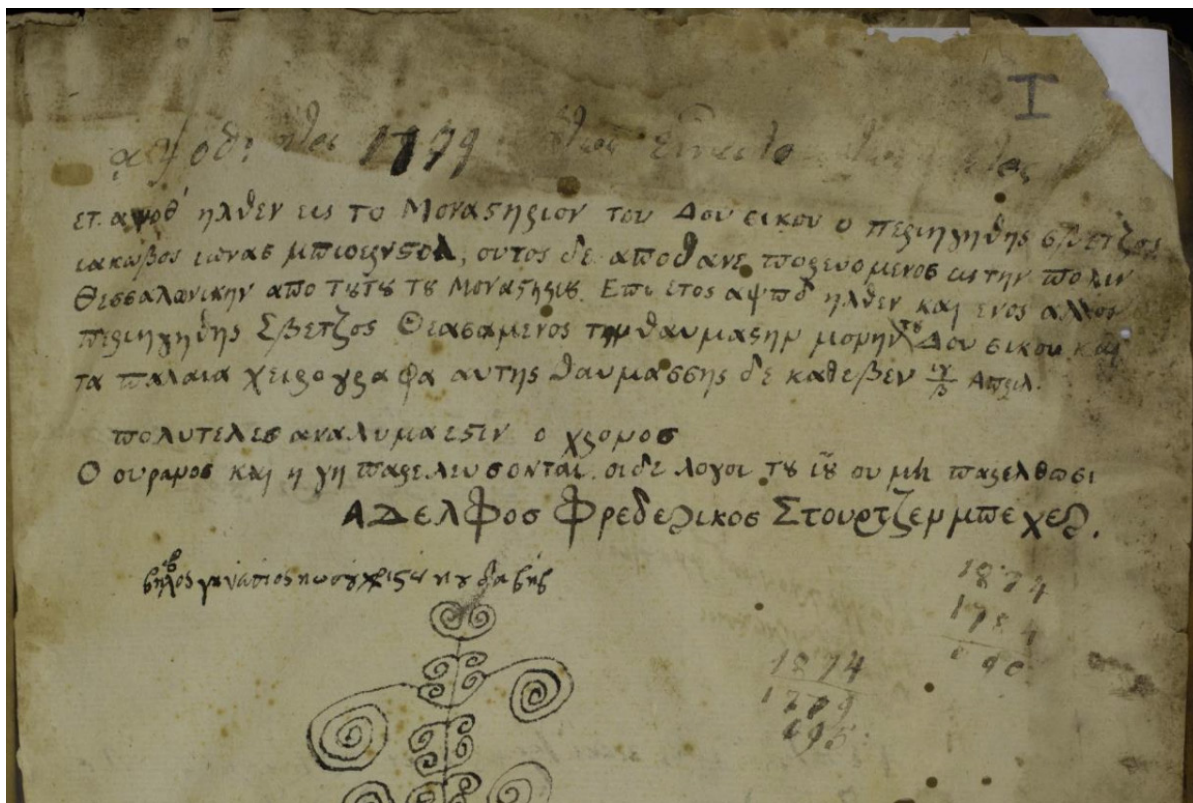 I
1779
ετ. αψοθ' ηλθεν εις το Μοναςηριον του Δουσικου ο περιηγηθης σβετζος
ιακωβος ιωνας μπιοερνςολ, ουτος δε αποθανε πορεωομενος εις την πολιν
Θεσσαλωνικην απο τȣτȣ τȣ Μοναςηριȣ. Επι ετος αψπδ ηλθεν και ενος αλλος
περιηγηθης Σβετζος Θεασαμενος την θαυμαςην μορην τȣ Δουσικου και
τα παλαια χειρογραφα αυτης θαυμασσης δε καθεβεν Απριλ.
πολυτελες αναλυμα εςιν ο χρονος
Ο ουρανος και η γη παρελευσονται. οι δε λογοι τȣ ιȣ ου μη παρελθωσι
ΑΔελΦος Φρεδερικος Στουρτζενμπεχερ.
1874
1784
1874
1779
095